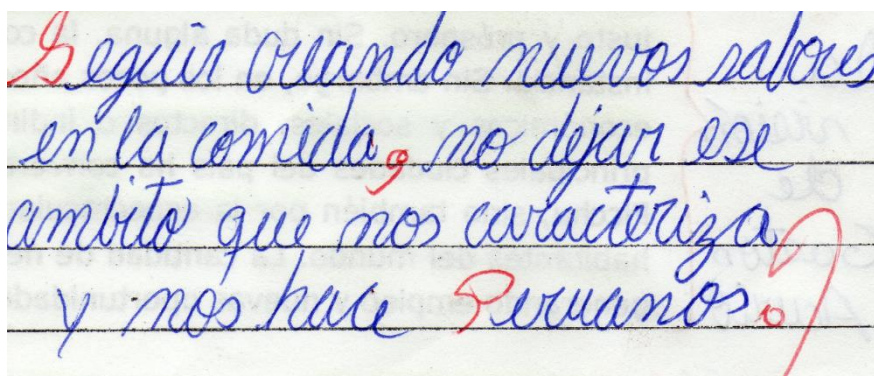 Seguir creando nuevos sabores
en la comida, no dejar ese
ambito que nos caracteriza
y nos hace Peruanos.